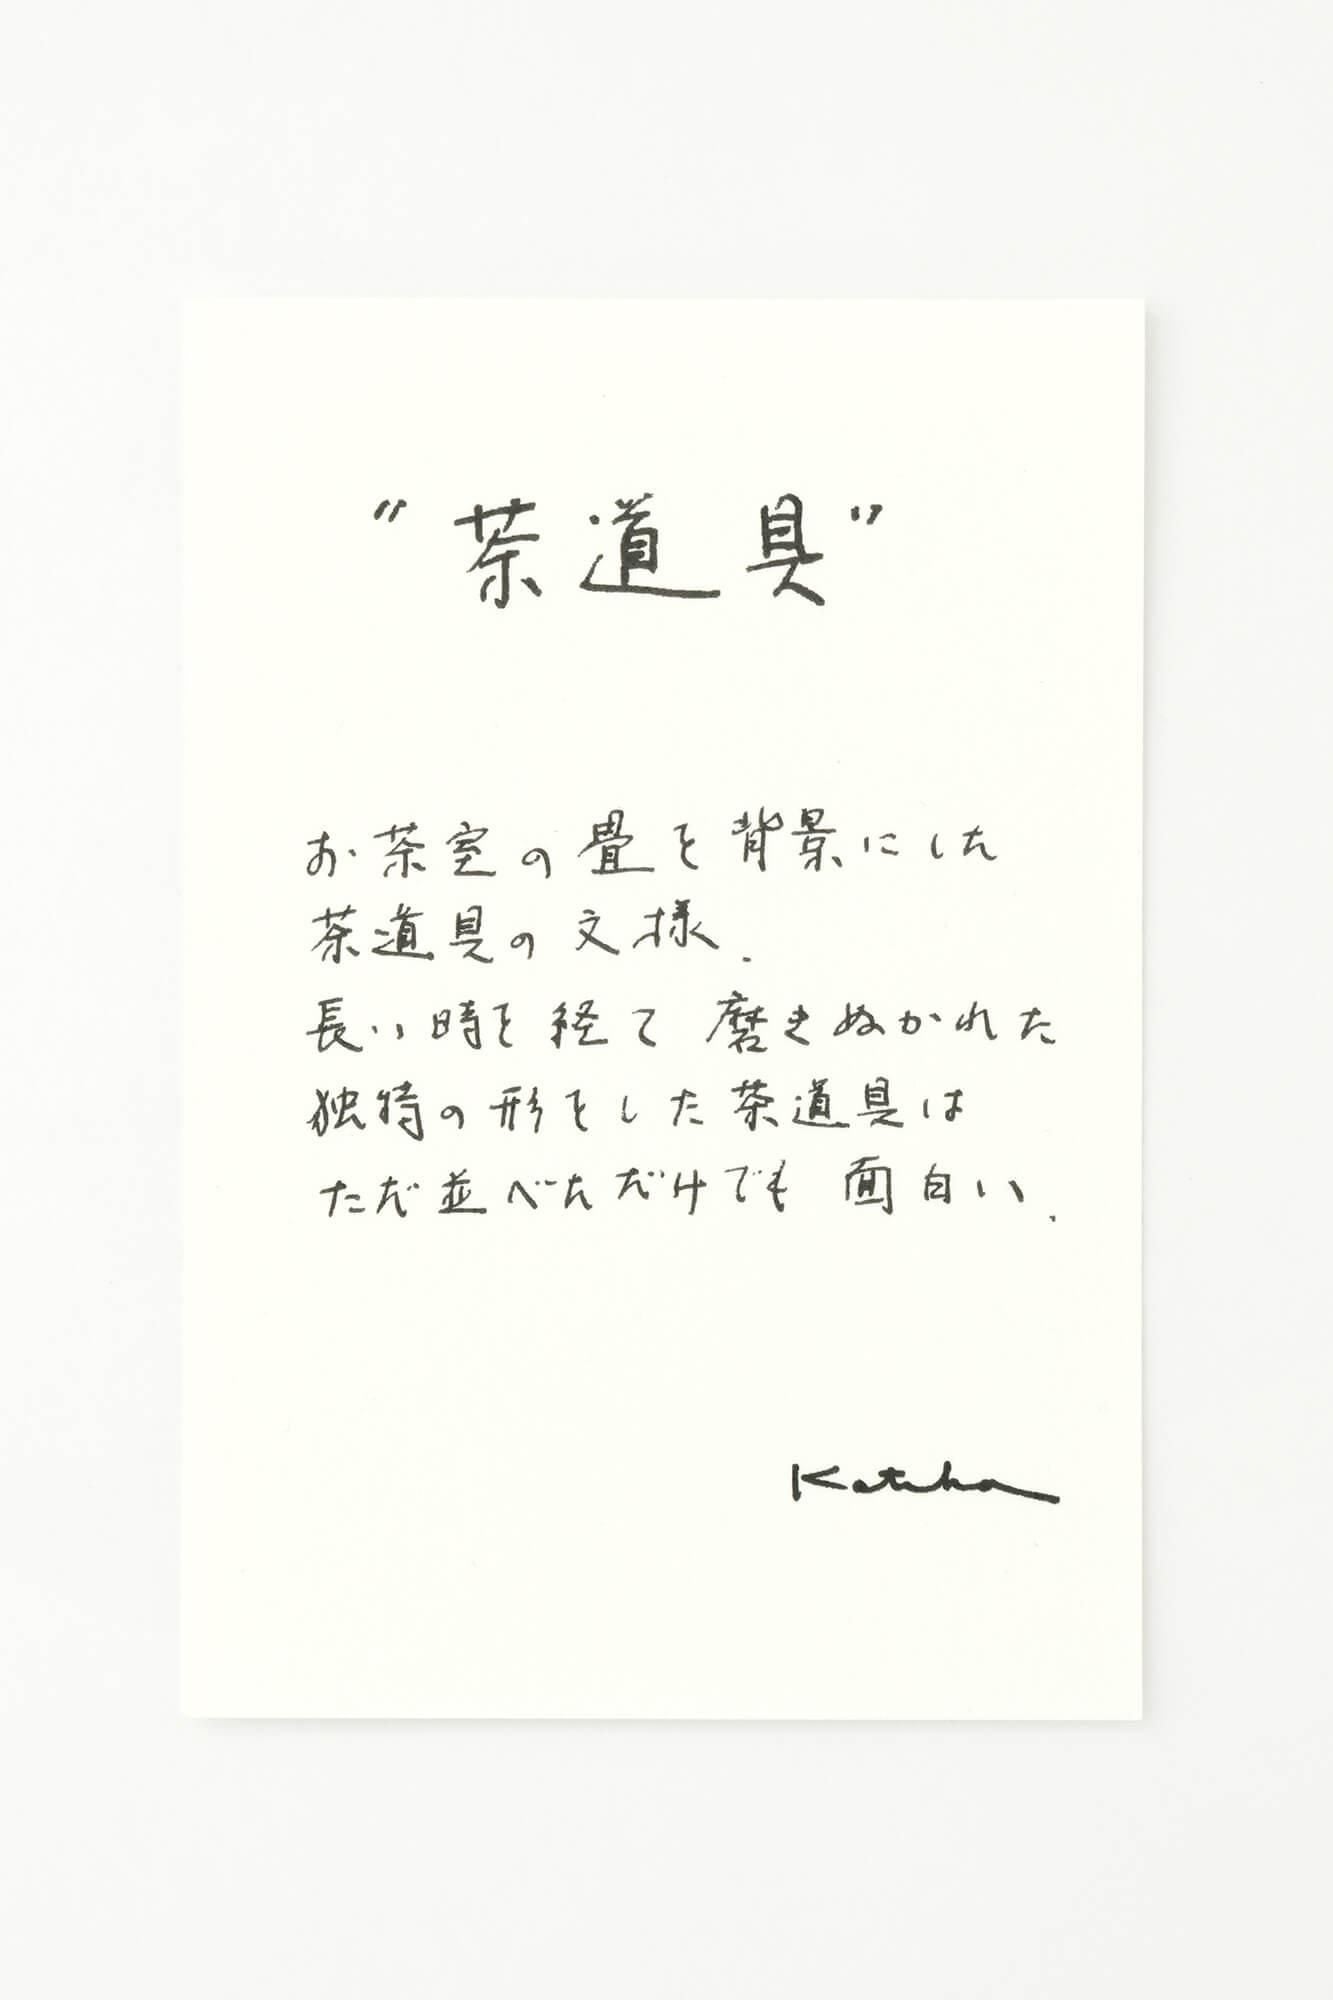 "茶道具"
お茶室の畳を背景にした
茶道具の文様.
長い時を経て磨きぬかれた
独特の形をした茶道具は
ただ並べただけでも面白い.
Katsuha